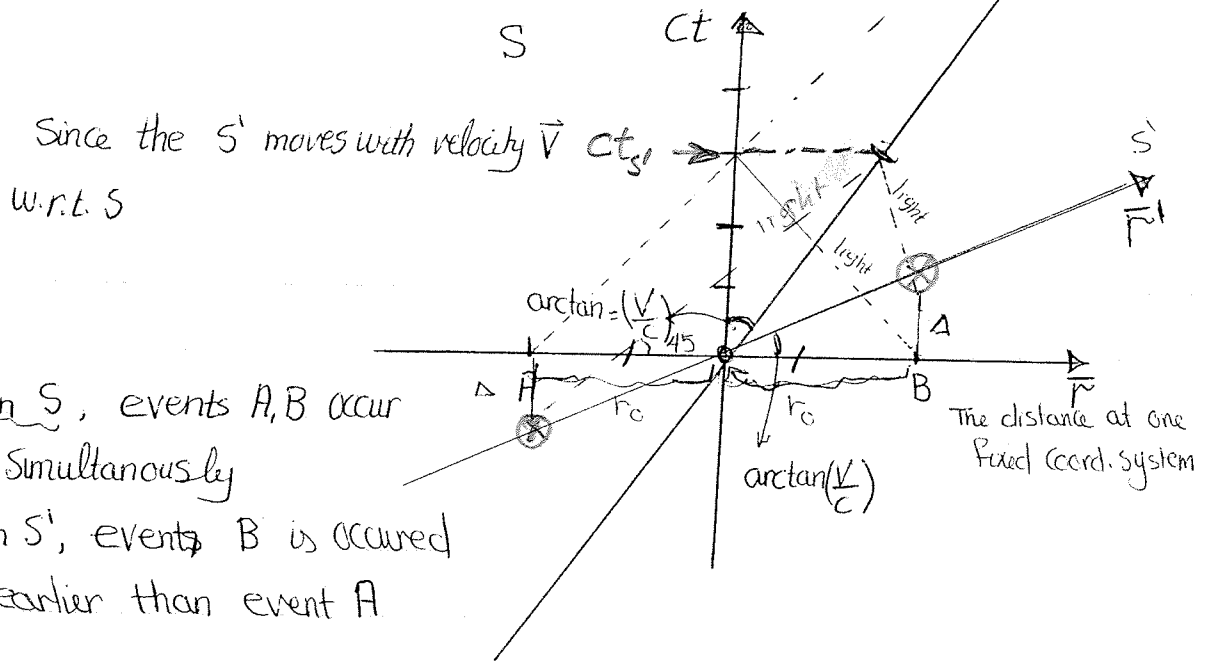 S
Ct
Since the S' moves with velocity V⃗
w.r.t. S
Ct_S'
S'
r̄'
light
light
light
arctan=(V/c)
45
Δ
Δ
A
r₀
r₀
B
r̄
arctan(V/c)
The distance at one
fixed Coord. System
n S, events A, B occur
Simultanously
n S', events B is occured
earlier than event A